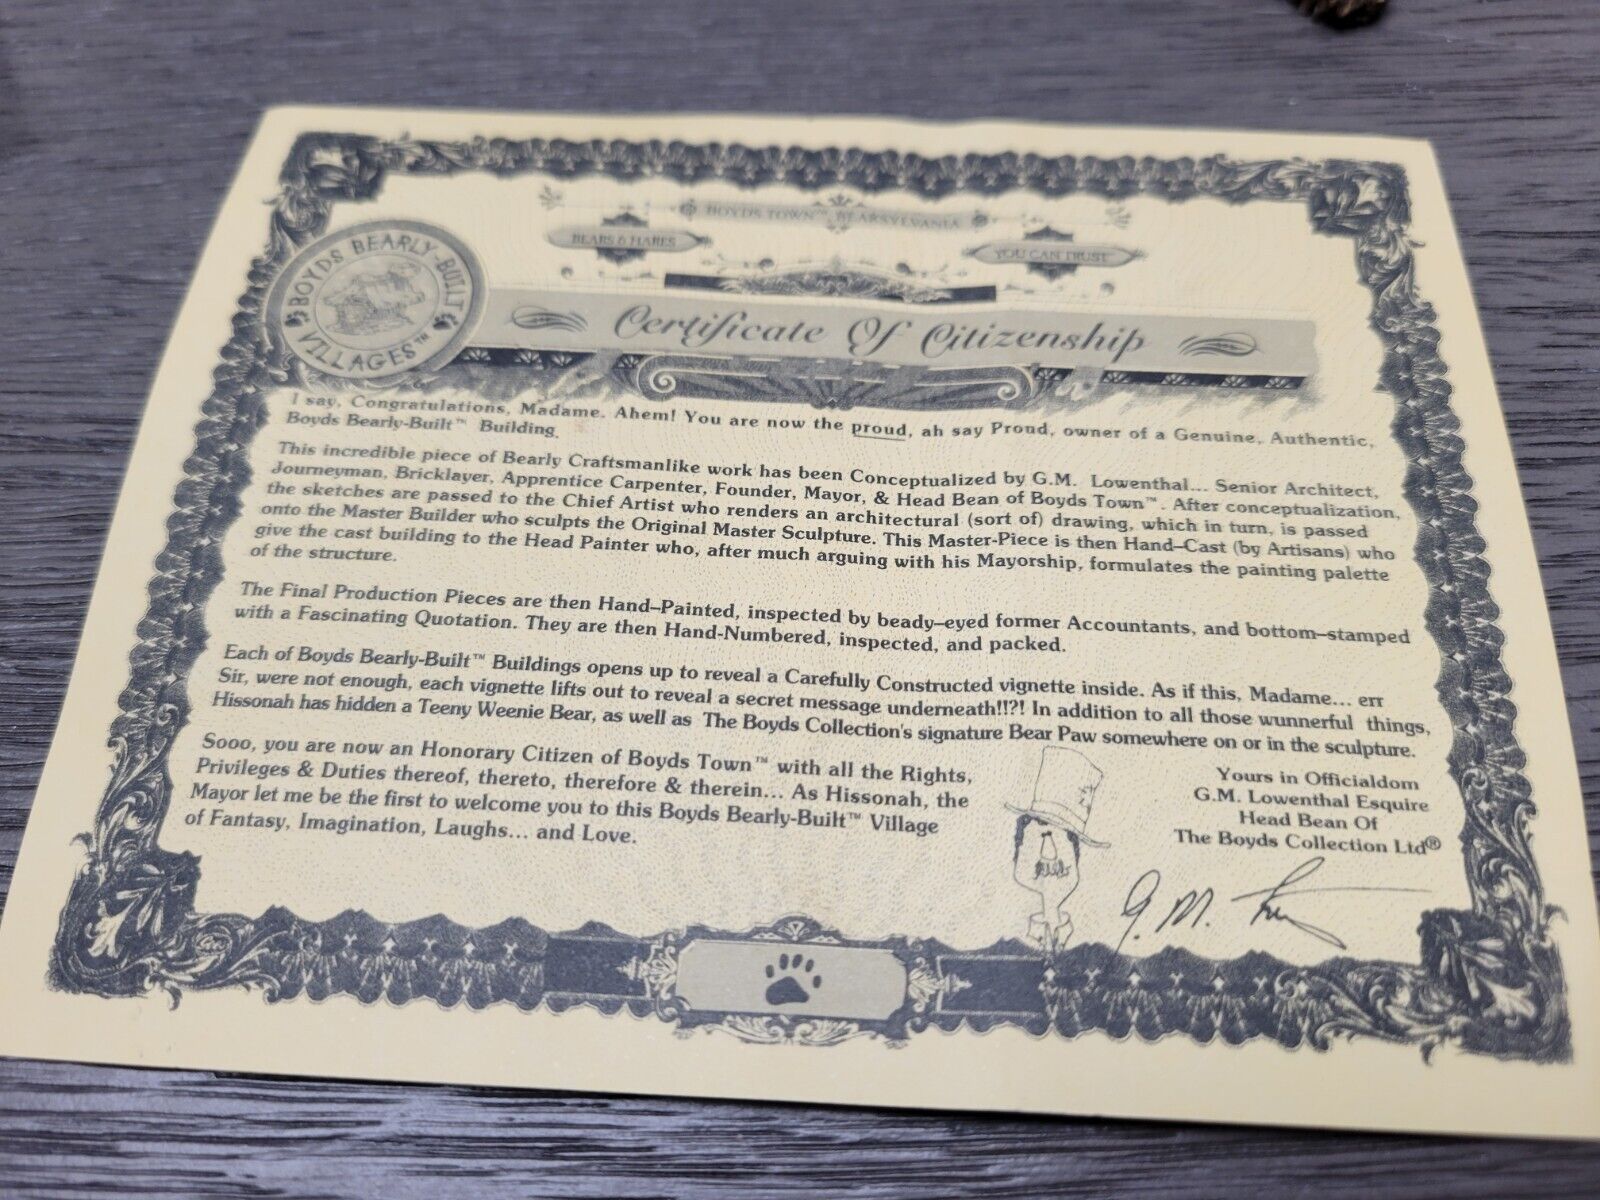 BOYDS TOWN™, BEARSYLVANIA
BEARS & HARES
YOU CAN TRUST
BOYDS BEARLY-BUILT
VILLAGES™
Certificate Of Citizenship
I say, Congratulations, Madame. Ahem! You are now the proud, ah say Proud, owner of a Genuine, Authentic,
Boyds Bearly-Built™ Building.
This incredible piece of Bearly Craftsmanlike work has been Conceptualized by G.M. Lowenthal... Senior Architect,
Journeyman, Bricklayer, Apprentice Carpenter, Founder, Mayor, & Head Bean of Boyds Town™. After conceptualization,
the sketches are passed to the Chief Artist who renders an architectural (sort of) drawing, which in turn, is passed
onto the Master Builder who sculpts the Original Master Sculpture. This Master-Piece is then Hand-Cast (by Artisans) who
give the cast building to the Head Painter who, after much arguing with his Mayorship, formulates the painting palette
of the structure.
The Final Production Pieces are then Hand-Painted, inspected by beady-eyed former Accountants, and bottom-stamped
with a Fascinating Quotation. They are then Hand-Numbered, inspected, and packed.
Each of Boyds Bearly-Built™ Buildings opens up to reveal a Carefully Constructed vignette inside. As if this, Madame... err
Sir, were not enough, each vignette lifts out to reveal a secret message underneath!!?! In addition to all those wunnerful things,
Hissonah has hidden a Teeny Weenie Bear, as well as The Boyds Collection's signature Bear Paw somewhere on or in the sculpture.
Sooo, you are now an Honorary Citizen of Boyds Town™ with all the Rights,
Privileges & Duties thereof, thereto, therefore & therein... As Hissonah, the
Mayor let me be the first to welcome you to this Boyds Bearly-Built™ Village
of Fantasy, Imagination, Laughs... and Love.
Yours in Officialdom
G.M. Lowenthal Esquire
Head Bean Of
The Boyds Collection Ltd®
G. M.